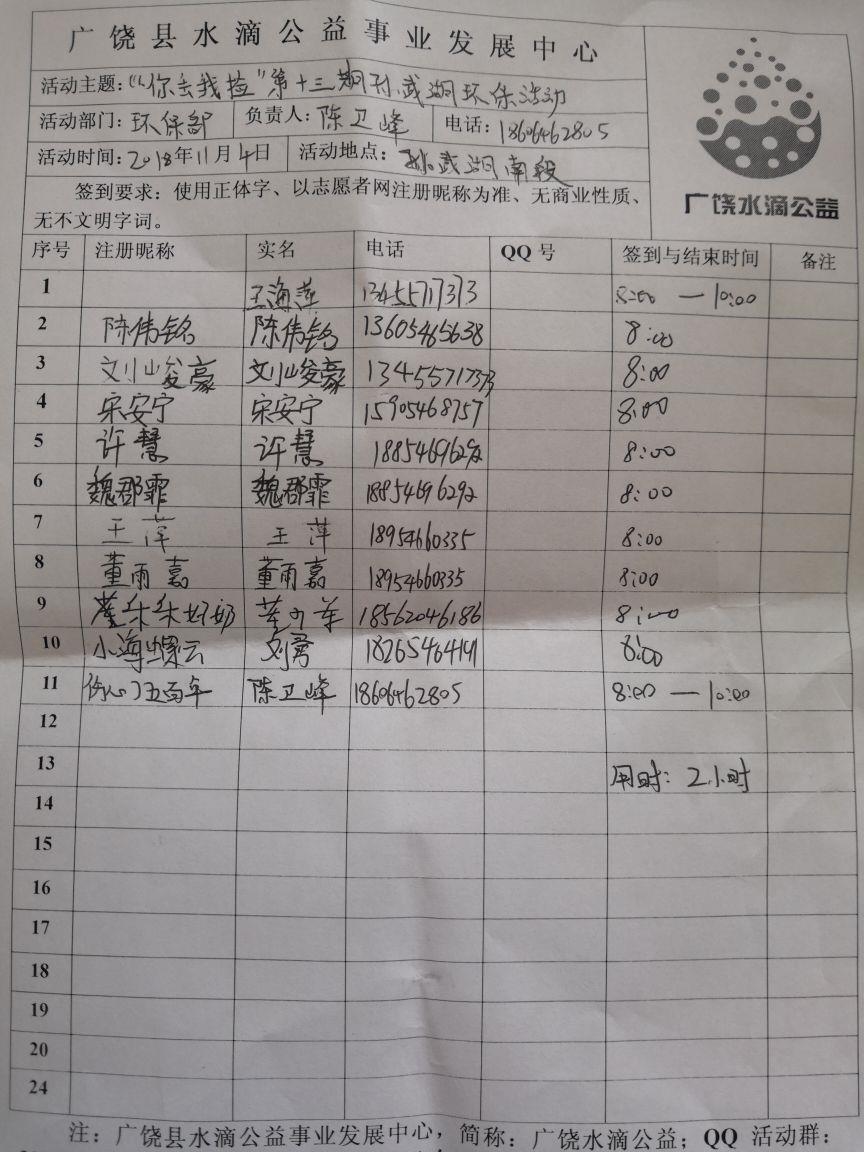 广饶县水滴公益事业发展中心
活动主题：“你丢我捡”第十三期孙武湖环保活动
活动部门：环保部 负责人：陈卫峰 电话：18606462805
活动时间：2018年11月4日 活动地点：孙武湖南段
广饶水滴公益
签到要求：使用正体字、以志愿者网注册昵称为准、无商业性质、
无不文明字词。
序号 注册昵称 实名 电话 QQ号 签到与结束时间 备注
1 王海萍 13455717373 8:00 — 10:00
2 陈伟铭 陈伟铭 13605465638 8:00
3 刘峻豪 刘峻豪 13455717373 8:00
4 宋安宁 宋安宁 15905468757 8:00
5 许慧 许慧 18854696292 8:00
6 魏郡霏 魏郡霏 18854696292 8:00
7 王萍 王萍 18954660335 8:00
8 董雨嘉 董雨嘉 18954660335 8:00
9 18562046186 8:00
10 小海螺云 刘勇 18265464141 8:00
11 五百年 陈卫峰 18606462805 8:00 — 10:00
12
13 用时：2小时
14
15
16
17
18
19
20
24
注：广饶县水滴公益事业发展中心，简称：广饶水滴公益；QQ 活动群：